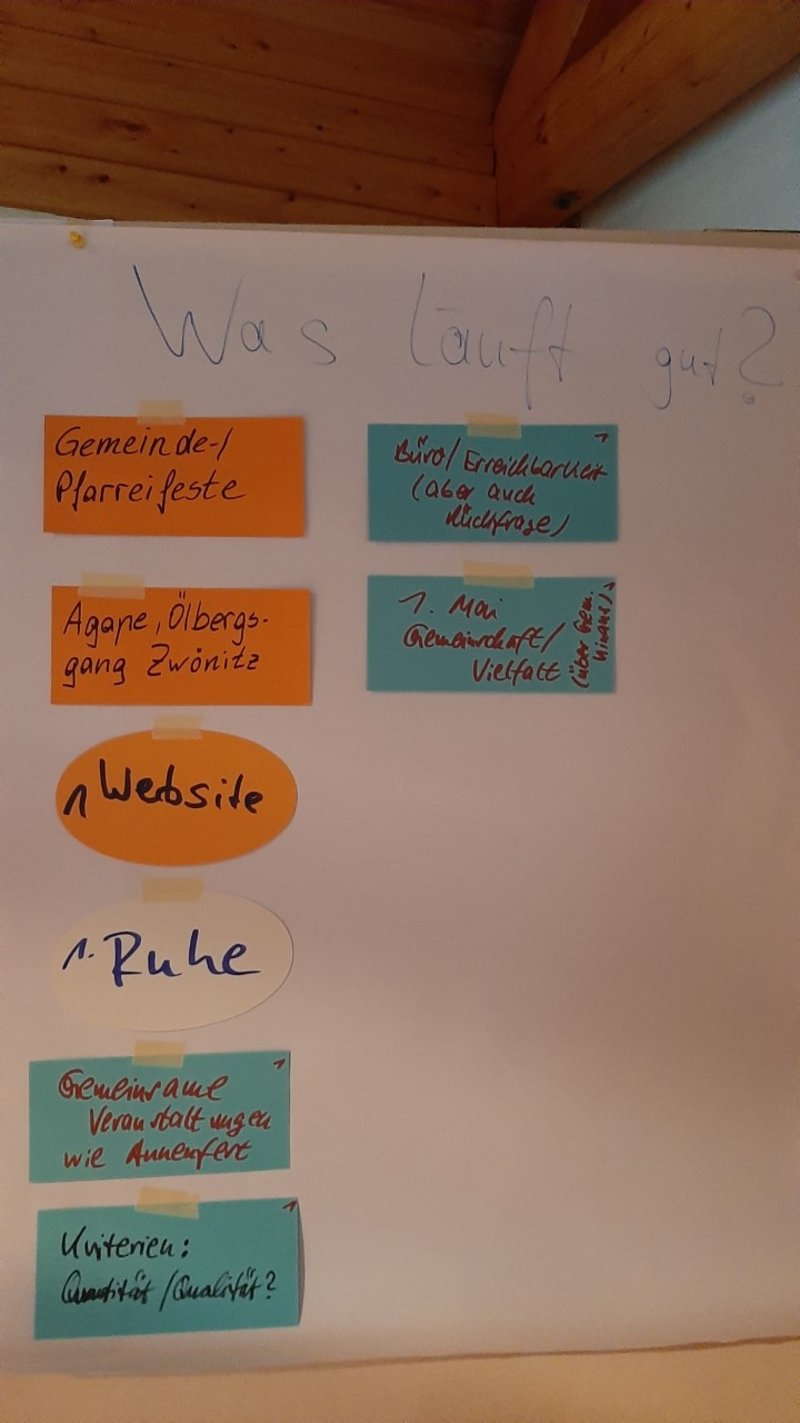 Was läuft gut?
Gemeinde-/
Pfarreifeste
Agape, Ölbergs-
gang Zwönitz
1 Website
1. Ruhe
1
Gemeinsame
Veranstaltungen
wie Annenfest
1
Kriterien:
Quantität / Qualität?
1
Büro/ Erreichbarkeit
(aber auch
Rückfrage)
1. Mai
Gemeinschaft/
Vielfalt
(über Gem.
hinaus)
1